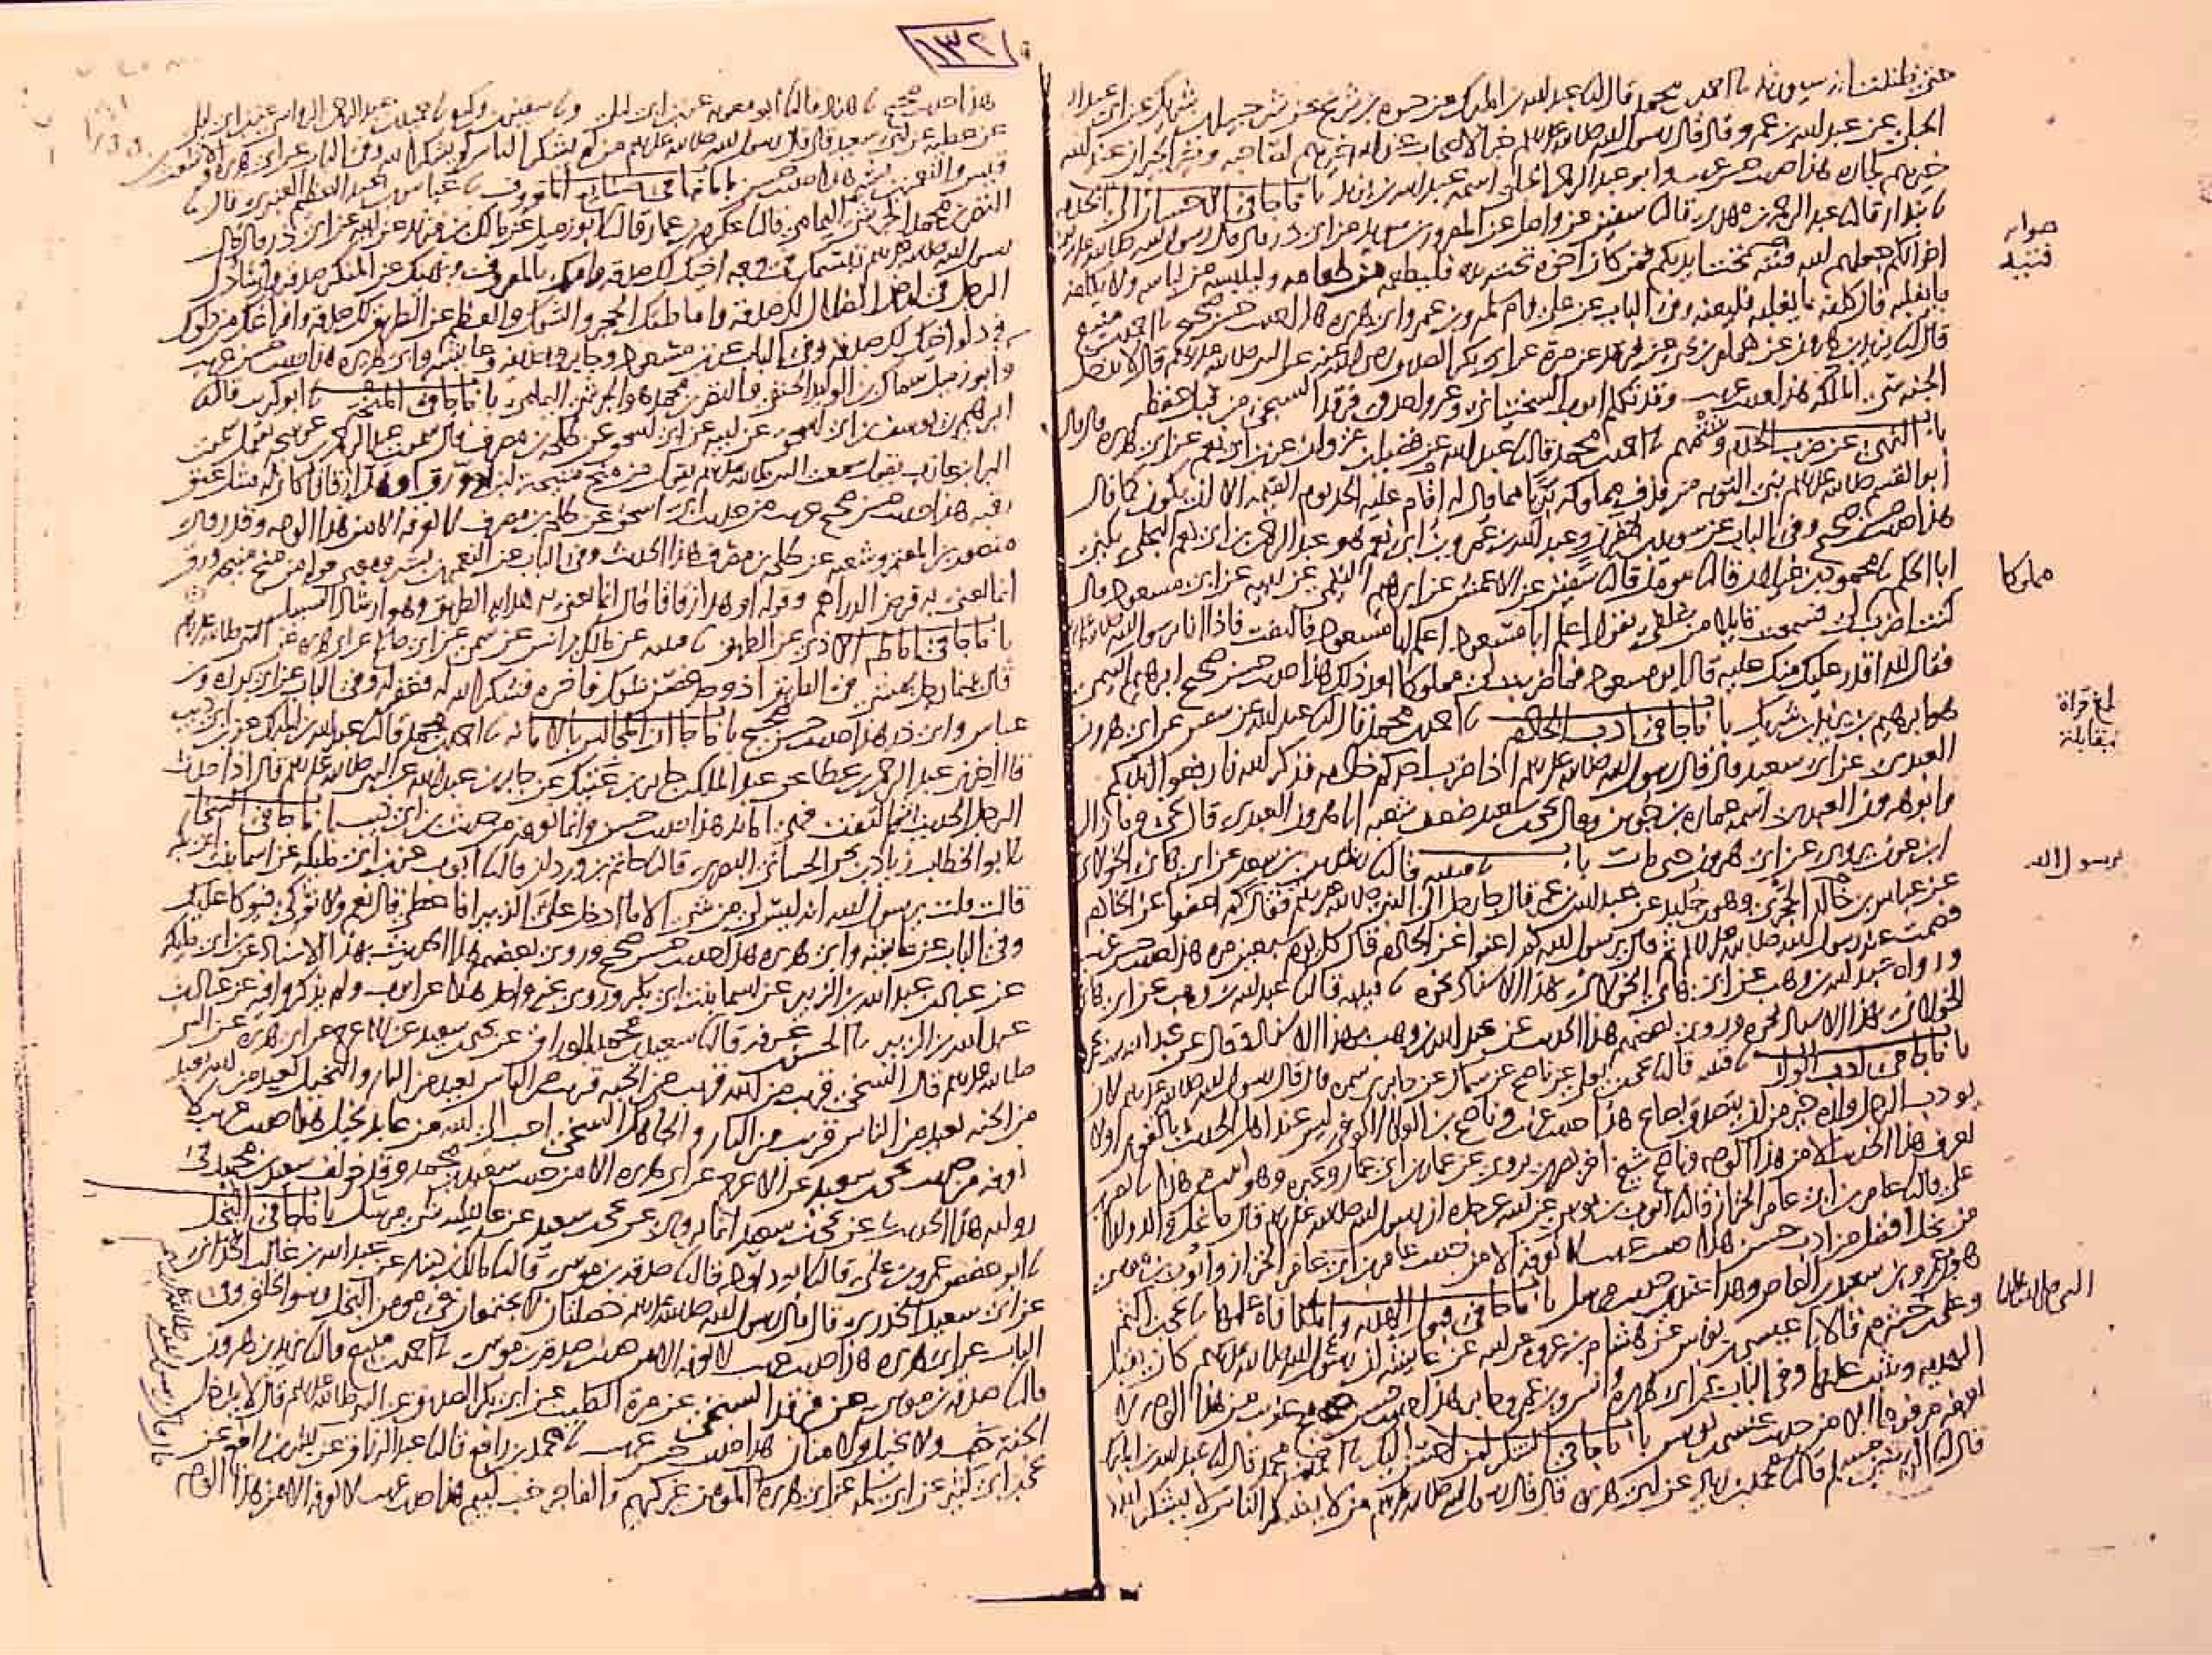 حتى ظننت انه سيورثه نا احمد بن محمد قال نا عبد الله بن المبرك عن حيوة بن شريح عن شرحبيل بن شريك عن ابي عبد الرحمن
الحبلي عن عبد الله بن عمرو قال قال رسول الله صلى الله عليه وسلم خير الاصحاب عند الله خيرهم لصاحبه وخير الجيران عند الله
خيرهم لجاره هذا حديث حسن غريب وابو عبد الرحمن الحبلي اسمه عبد الله بن يزيد باب ما جا في الاحسان الى الخدم
نا بندار قال نا عبد الرحمن بن مهدي قال نا سفين عن واصل عن المعرور بن سويد عن ابي ذر قال قال رسول الله صلى الله عليه وسلم
اخوانكم جعلهم الله فتنة تحت ايديكم فمن كان اخوه تحت يده فليطعمه من طعامه وليلبسه من لباسه ولا يكلفه
ما يغلبه فان كلفه ما يغلبه فليعنه وفي الباب عن علي وام سلمة وابن عمر وابي هريرة هذا حديث حسن صحيح نا احمد بن منيع
قال نا يزيد بن هارون عن همام بن يحيى عن فرقد عن مرة عن ابي بكر الصديق عن النبي صلى الله عليه وسلم قال لا يدخل
الجنة سيئ الملكة هذا حديث غريب وقد تكلم ايوب السختياني وغير واحد في فرقد السبخي من قبل حفظه
باب النهي عن ضرب الخدام وشتمهم نا احمد بن محمد قال نا عبد الله عن فضيل بن غزوان عن ابن ابي نعم عن ابي هريرة قال قال
ابو القسم صلى الله عليه وسلم نبي التوبة من قذف مملوكه بريا مما قال له اقام عليه الحد يوم القيمة الا ان يكون كما قال
هذا حديث حسن صحيح وفي الباب عن سويد بن مقرن وعبد الله بن عمر وابن ابي نعم هو عبد الرحمن بن ابي نعم البجلي يكنى
ابا الحكم نا محمود بن غيلان قال نا مومل قال نا سفين عن الاعمش عن ابرهيم التيمي عن ابيه عن ابي مسعود قال
كنت اضرب فسمعت قايلا من خلفي يقول اعلم ابا مسعود اعلم ابا مسعود فالتفت فاذا انا برسول الله صلى الله عليه وسلم
فقال لله اقدر عليك منك عليه قال ابو مسعود فما ضربت لي مملوكا بعد ذلك هذا حديث حسن صحيح ابرهيم التيمي
هو ابرهيم بن يزيد بن شريك باب ما جا في ادب الخادم نا احمد بن محمد قال نا عبد الله عن سفين عن ابي هرون
العبدي عن ابي سعيد قال قال رسول الله صلى الله عليه وسلم اذا ضرب احدكم خادمه فذكر الله فارفعوا ايديكم
وابو هرون العبدي اسمه عمارة بن جوين وقال يحيى بن سعيد ضعف شعبة ابا هرون العبدي قال يحيى وما زال
ابن عون يروي عن ابي هرون حتى مات باب نا قتيبة قال نا رشدين بن سعد عن ابي هاني الخولاني
عن عباس بن خالد الحجري وهو جليد عن عبد الله بن عمر قال جا رجل الى النبي صلى الله عليه وسلم فقال كم اعفو عن الخادم
فصمت عنه رسول الله صلى الله عليه وسلم ثم قال يرسول الله كم اعفو عن الخادم قال كل يوم سبعين مرة هذا حديث حسن غريب
ورواه عبد الله بن وهب عن ابي هاني الخولاني بهذا الاسناد نحوه نا قتيبة قال نا عبد الله بن وهب عن ابي هاني
الخولاني بهذا الاسناد نحوه وروى بعضهم هذا الحديث عن عبد الله بن وهب بهذا الاسناد وقال عن عبد الله بن عمرو
باب ما جا في ادب الولد نا قتيبة قال نا يحيى بن يعلى عن ناصح عن سماك عن جابر بن سمرة قال قال رسول الله صلى الله عليه وسلم لان
يودب الرجل ولده خير من ان يتصدق بصاع هذا حديث غريب وناصح بن العلا الكوفي ليس عند اهل الحديث بالقوي ولا
يعرف هذا الحديث الا من هذا الوجه وناصح شيخ اخر بصري يروي عن عمار بن ابي عمار وغيره وهو اثبت من هذا نا نصر بن
علي قال نا عامر بن ابي عامر الخزاز قال نا ايوب بن موسى عن ابيه عن جده ان رسول الله صلى الله عليه وسلم قال ما نحل والد ولدا
من نحل افضل من ادب حسن هذا حديث غريب لا نعرفه الا من حديث عامر بن ابي عامر الخزاز وايوب بن موسى
هو ابن عمرو بن سعيد بن العاص وهذا عندي حديث مرسل باب ما جا في قبول الهدية والمكافاة عليها نا يحيى بن اكثم
وعلي بن خشرم قالا نا عيسى بن يونس عن هشام بن عروة عن ابيه عن عايشة ان رسول الله صلى الله عليه وسلم كان يقبل
الهدية ويثيب عليها وفي الباب عن ابي هريرة وانس وابن عمر وجابر هذا حديث حسن صحيح غريب من هذا الوجه لا
نعرفه مرفوعا الا من حديث عيسى بن يونس باب ما جا في الشكر لمن احسن اليك نا احمد بن محمد قال نا عبد الله بن المبارك
قال نا الربيع بن مسلم قال نا محمد بن زياد عن ابي هريرة قال قال رسول الله صلى الله عليه وسلم من لا يشكر الناس لا يشكر الله
صوابه
فتية
مملوكا
بلغ قراة
ومقابلة
يرسول الله
النبي صلى الله عليه
١٣٢
هذا حديث صحيح نا هناد قال نا ابو معوية عن ابن ابي ليلى ونا سفين بن وكيع نا حميد بن عبد الرحمن الرواسي عن ابن ابي ليلى
عن عطية عن ابي سعيد قال قال رسول الله صلى الله عليه وسلم من لم يشكر الناس لم يشكر الله وفي الباب عن ابي هريرة والاشعث بن
قيس والنعمن بن بشير هذا حديث حسن باب ما جا في صنايع المعروف نا عباس بن عبد العظيم العنبري قال نا
النضر بن محمد الجرشي اليمامي قال نا عكرمة بن عمار قال نا ابو زميل عن مالك بن مرثد عن ابيه عن ابي ذر قال قال
رسول الله صلى الله عليه وسلم تبسمك في وجه اخيك لك صدقة وامرك بالمعروف ونهيك عن المنكر صدقة وارشادك
الرجل في ارض الضلال لك صدقة واماطتك الحجر والشوك والعظم عن الطريق لك صدقة وافراغك من دلوك
في دلو اخيك لك صدقة وفي الباب عن ابن مسعود وجابر وحذيفة وعايشة وابي هريرة هذا حديث حسن غريب
وابو زميل سماك بن الوليد الحنفي والنضر بن محمد هو الجرشي اليمامي باب ما جا في المنحة نا ابو كريب قال نا
ابرهيم بن يوسف بن ابي اسحق عن ابيه عن ابي اسحق عن طلحة بن مصرف قال سمعت عبد الرحمن بن عوسجة يقول سمعت
البرا بن عازب يقول سمعت النبي صلى الله عليه وسلم يقول من منح منيحة لبن او ورق او هدى زقاقا كان له مثل عتق
رقبة هذا حديث حسن صحيح غريب من حديث ابي اسحق عن طلحة بن مصرف لا نعرفه الا من هذا الوجه وقد روى
منصور بن المعتمر وشعبة عن طلحة بن مصرف هذا الحديث وفي الباب عن النعمن بن بشير ومعنى قوله من منح منيحة ورق
انما يعني به قرض الدراهم وقوله او هدى زقاقا قال انما يعني به هداية الطريق وهو ارشاد السبيل
باب ما جا في اماطة الاذى عن الطريق نا قتيبة عن مالك بن انس عن سمي عن ابي صالح عن ابي هريرة عن النبي صلى الله عليه وسلم
قال بينما رجل يمشي في الطريق اذ وجد غصن شوك فاخره فشكر الله له فغفر له وفي الباب عن ابي برزة وابن
عباس وابي ذر هذا حديث حسن صحيح باب ما جا ان المجالس بالامانة نا احمد بن محمد قال نا عبد الله بن المبارك عن ابن ابي ذيب
قال اخبرني عبد الرحمن بن عطا عن عبد الملك بن جابر بن عتيك عن جابر بن عبد الله عن النبي صلى الله عليه وسلم قال اذا حدث
الرجل الحديث ثم التفت فهي امانة هذا حديث حسن وانما نعرفه من حديث ابن ابي ذيب باب ما جا في السخا
نا ابو الخطاب زياد بن يحيى الحساني البصري قال نا حاتم بن وردان قال نا ايوب عن ابن ابي مليكة عن اسما بنت ابي بكر
قالت قلت يرسول الله انه ليس لي من شي الا ما ادخل علي الزبير افاعطي قال نعم ولا توكي فيوكا عليك
وفي الباب عن عايشة وابي هريرة هذا حديث حسن صحيح وروى بعضهم هذا الحديث بهذا الاسناد عن ابن ابي مليكة
عن عباد بن عبد الله بن الزبير عن اسما بنت ابي بكر وروى غير واحد هذا عن ايوب ولم يذكروا فيه عن عباد بن
عبد الله بن الزبير نا الحسن بن عرفة قال نا سعيد بن محمد الوراق عن يحيى بن سعيد عن الاعرج عن ابي هريرة عن النبي
صلى الله عليه وسلم قال السخي قريب من الله قريب من الجنة قريب من الناس بعيد من النار والبخيل بعيد من الله بعيد
من الجنة بعيد من الناس قريب من النار والجاهل السخي احب الى الله من عابد بخيل هذا حديث غريب لا
نعرفه من حديث يحيى بن سعيد عن الاعرج عن ابي هريرة الا من حديث سعيد بن محمد وقد خولف سعيد بن محمد في
رواية هذا الحديث عن يحيى بن سعيد انما يروى عن يحيى بن سعيد عن عايشة شي مرسل باب ما جا في البخل
نا ابو حفص عمرو بن علي قال نا ابو داود قال نا صدقة بن موسى قال نا مالك بن دينار عن عبد الله بن غالب الحداني
عن ابي سعيد الخدري قال قال رسول الله صلى الله عليه وسلم خصلتان لا يجتمعان في مومن البخل وسو الخلق وفي
الباب عن ابي هريرة هذا حديث غريب لا نعرفه الا من حديث صدقة بن موسى نا احمد بن منيع قال نا يزيد بن هرون
قال نا صدقة بن موسى عن فرقد السبخي عن مرة الطيب عن ابي بكر الصديق عن النبي صلى الله عليه وسلم قال لا يدخل
الجنة خب ولا بخيل ولا منان هذا حديث حسن غريب نا محمد بن رافع قال نا عبد الرزاق عن بشر بن رافع عن
يحيى بن ابي كثير عن ابي سلمة عن ابي هريرة المومن غر كريم والفاجر خب لييم هذا حديث غريب لا نعرفه الا من هذا الوجه
قال قال رسول الله صلى الله عليه وسلم